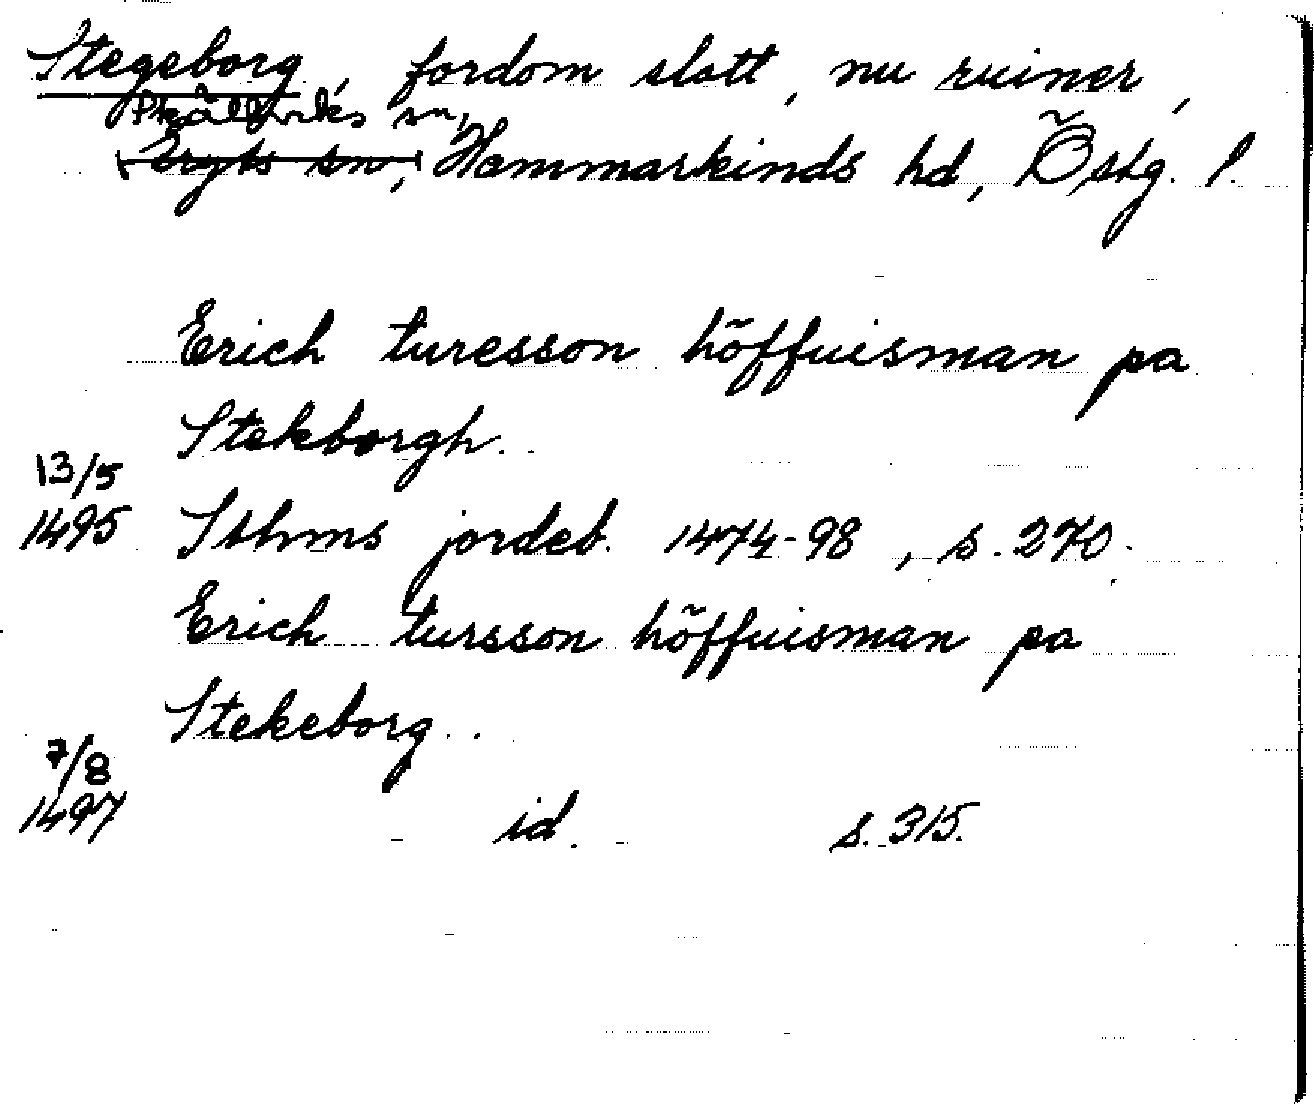 Stegeborg, fordom slott, nu ruiner,
Skällviks sn,
Eryts sn, Hammarkinds hd, Östg. l.
Erich turesson höffuisman pa
Stekborgh.
13/5
1495 Sthms jordeb. 1474-98, s. 270.
Erich tursson höffuisman pa
Stekeborg..
7/8
1497 id. s. 315.